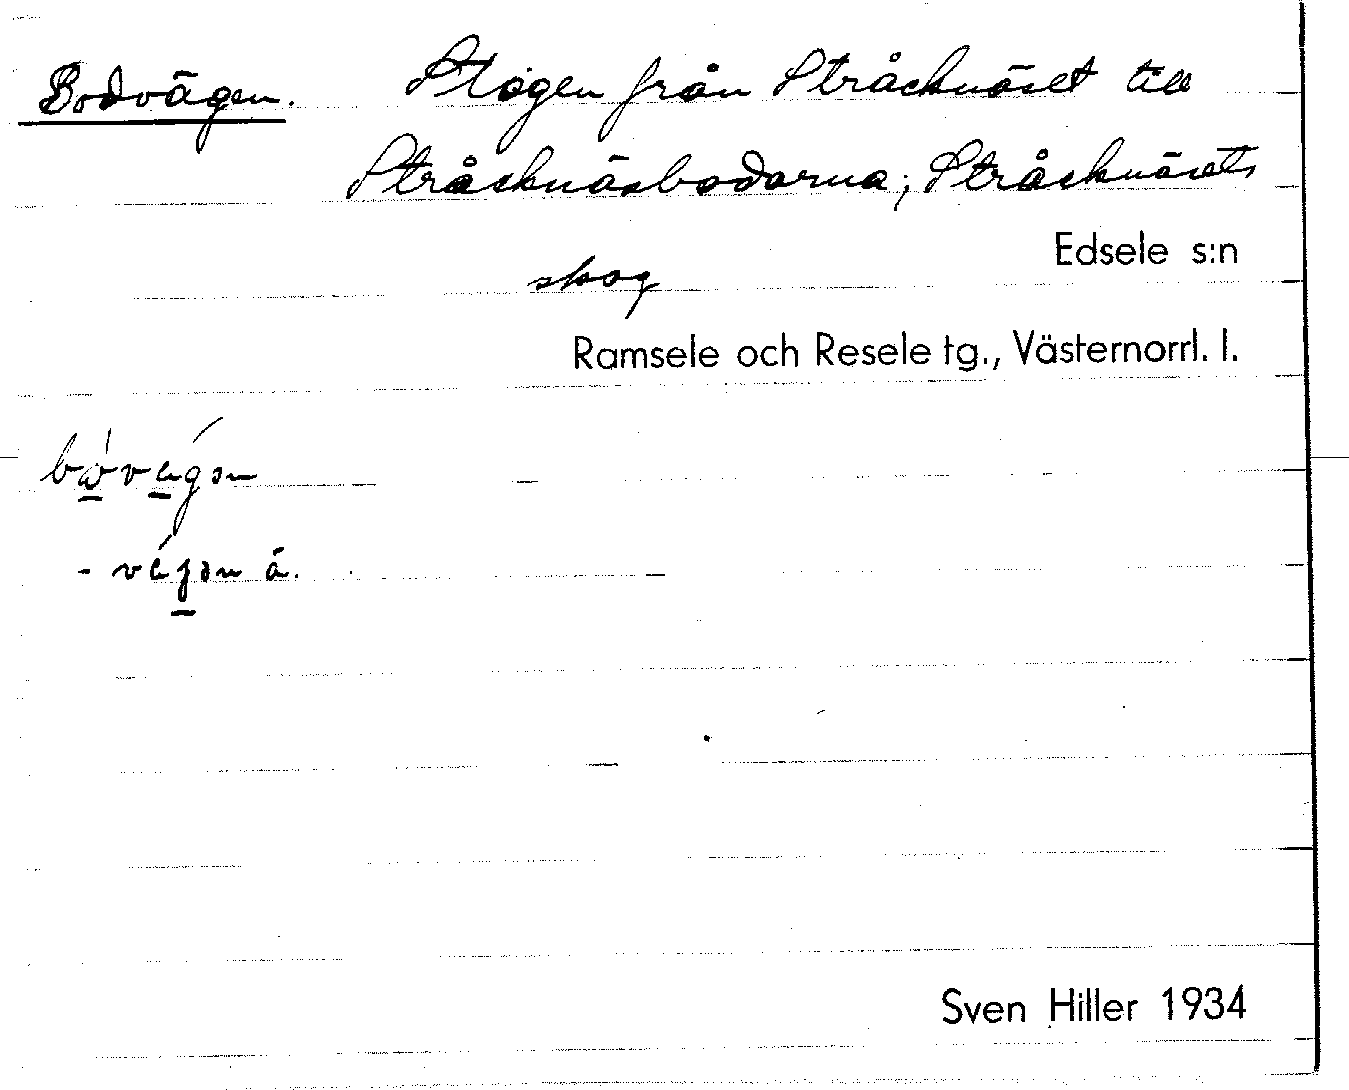 Bodvägen. Stigen från Stråcknäset till
Stråcknäsbodarna; Stråcknäsets
skog
Edsele s:n
Ramsele och Resele tg., Västernorrl. l.
Sven Hiller 1934